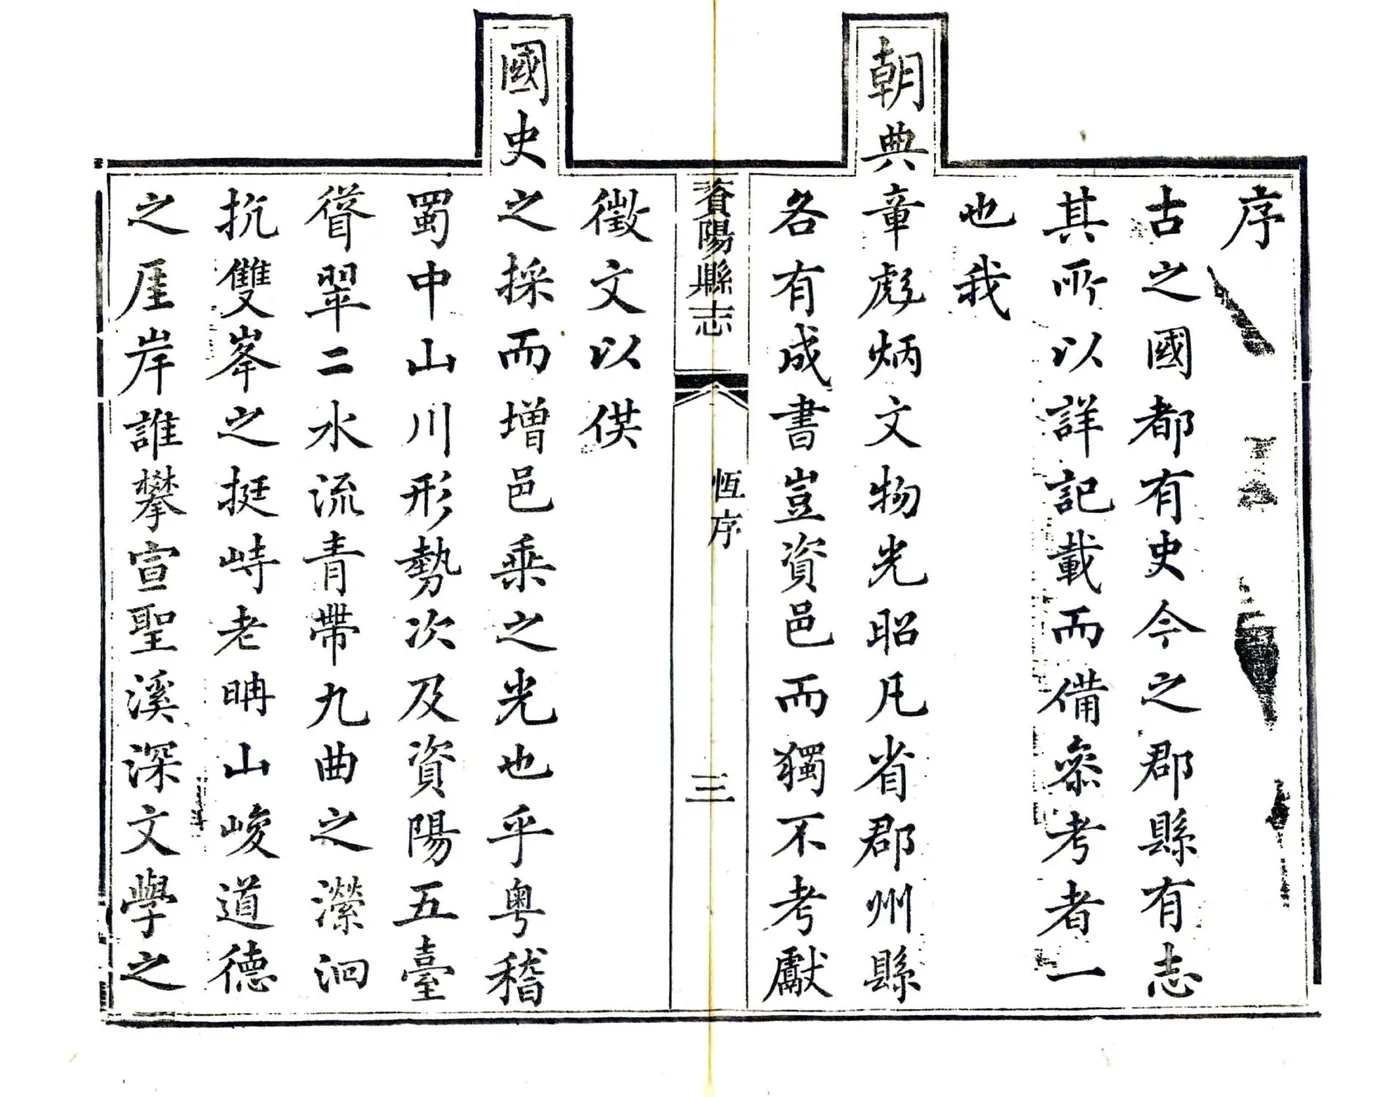 序
古之國都有史今之郡縣有志
其所以詳記載而備叅考者一
也我
朝典章彪炳文物光昭凡省郡州縣
各有成書豈資邑而獨不考獻
資陽縣志
恆序
三
徵文以供
國史之採而增邑乘之光也乎粤稽
蜀中山川形勢次及資陽五臺
聳翠二水流青帶九曲之瀠洄
抗雙峯之挺峙老聃山峻道德
之厓岸誰攀宣聖溪深文學之